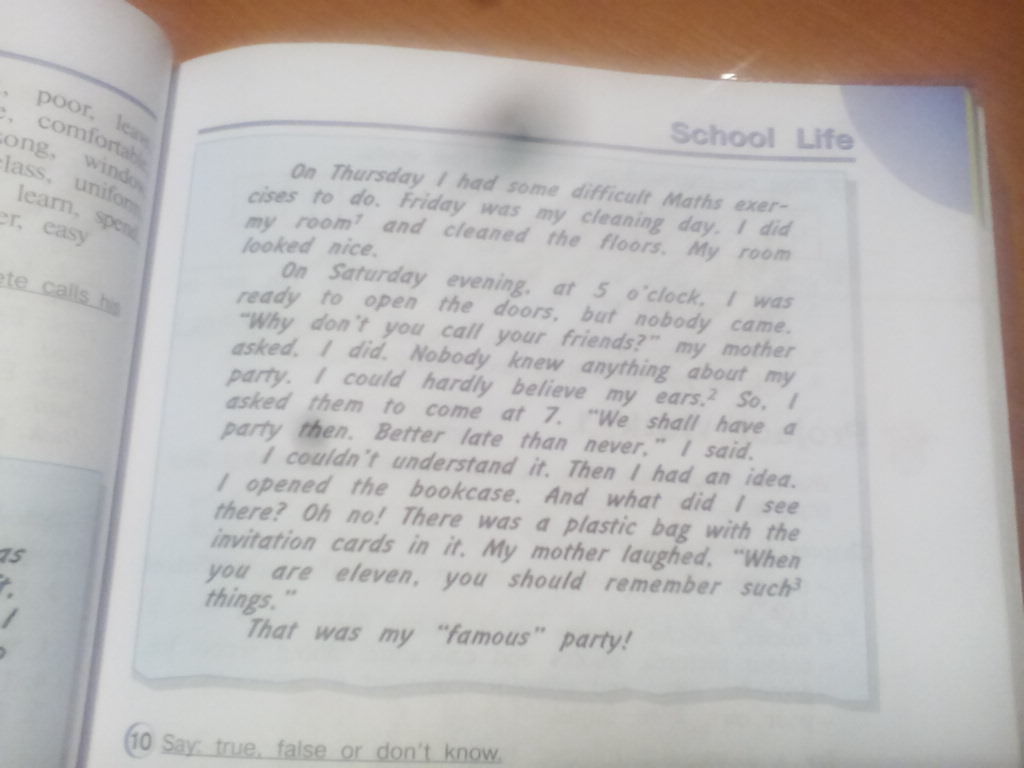 poor, leave
comfortable
song, window
class, uniform
learn, spend
er, easy
ete calls his
as
I
School Life
On Thursday I had some difficult Maths exer-
cises to do. Friday was my cleaning day. I did
my room¹ and cleaned the floors. My room
looked nice.
On Saturday evening, at 5 o'clock, I was
ready to open the doors, but nobody came.
"Why don't you call your friends?" my mother
asked. I did. Nobody knew anything about my
party. I could hardly believe my ears.² So, I
asked them to come at 7. "We shall have a
party then. Better late than never," I said.
I couldn't understand it. Then I had an idea.
I opened the bookcase. And what did I see
there? Oh no! There was a plastic bag with the
invitation cards in it. My mother laughed, "When
you are eleven, you should remember such³
things."
That was my "famous" party!
10 Say: true, false or don't know.